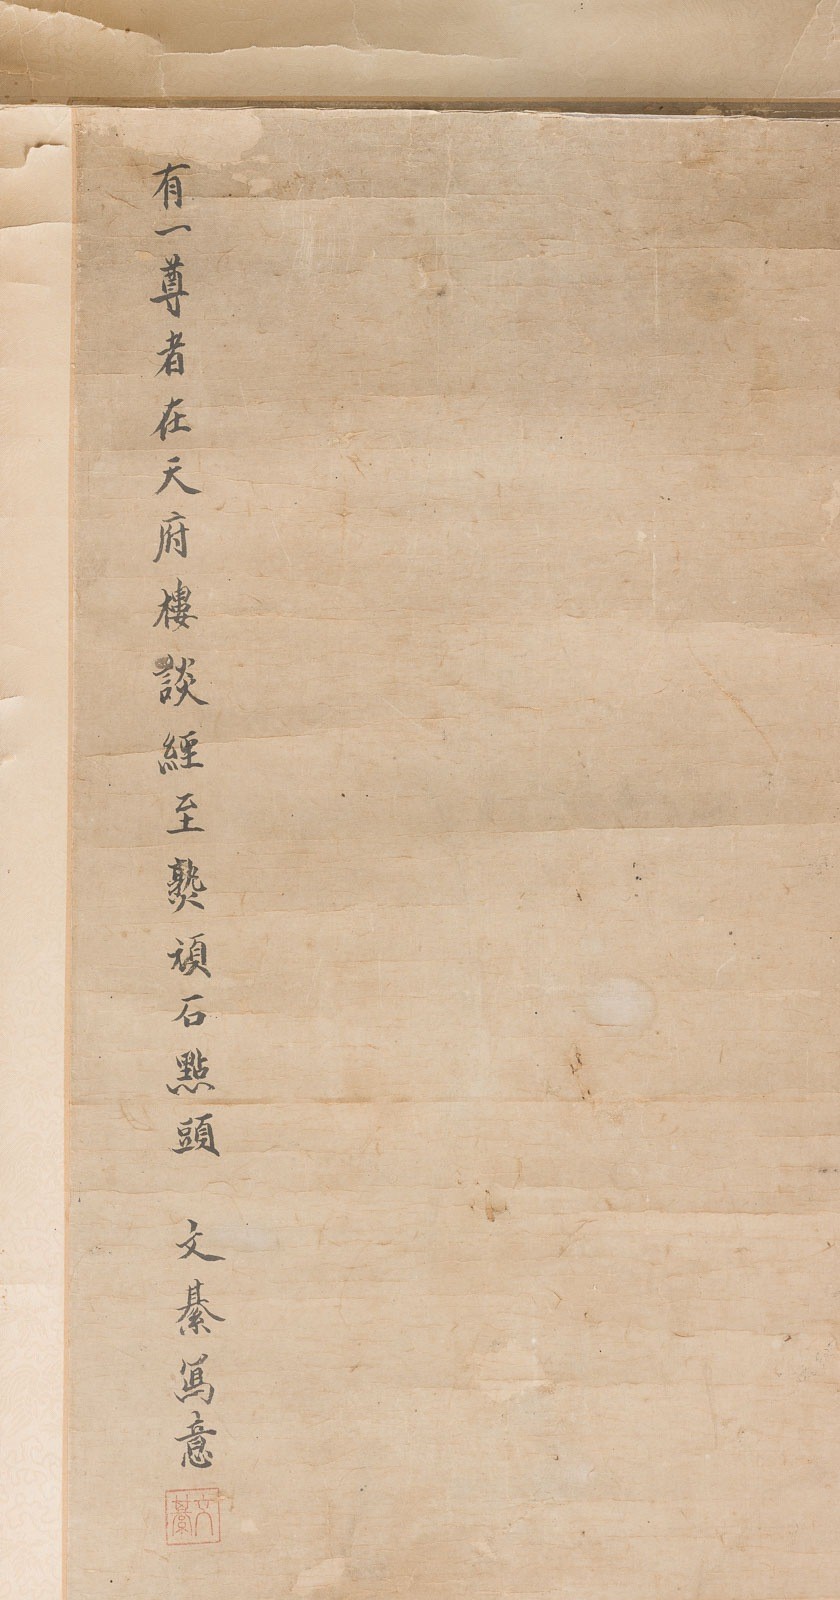 有一尊者在天府樓談經至熟頑石點頭 文綦寫意
文綦